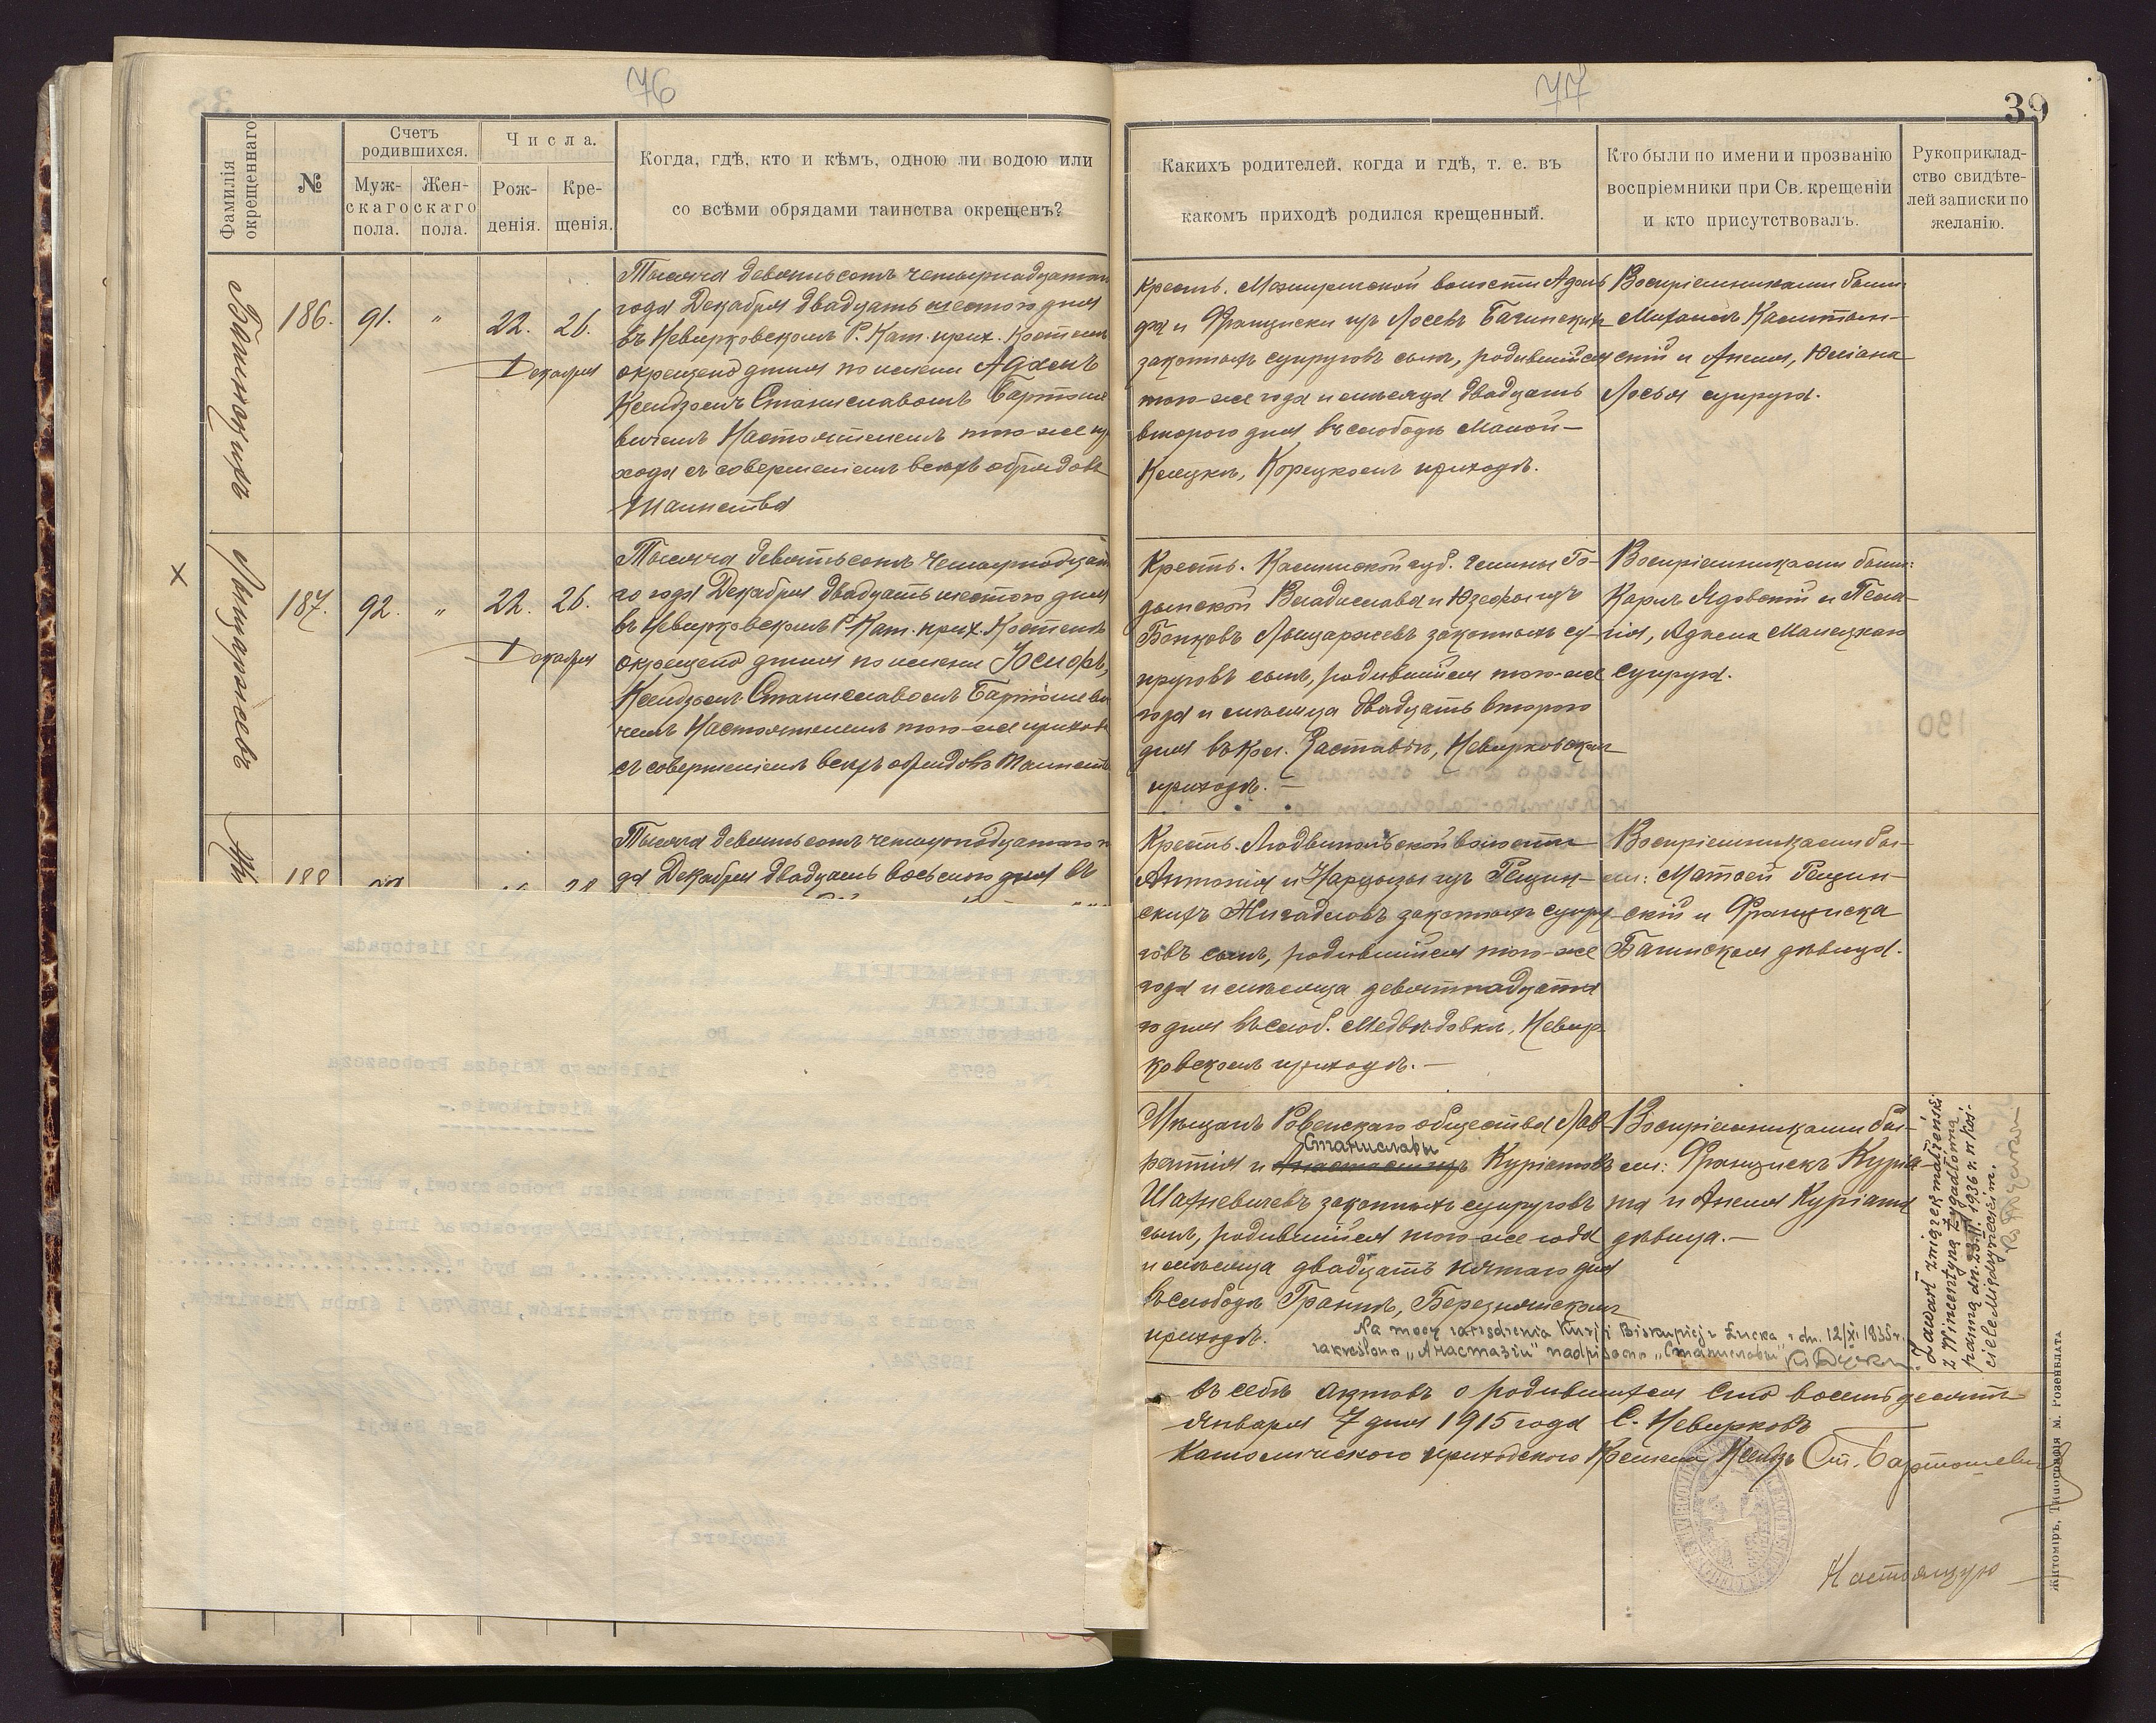 76
Фамилія
окрещеннаго
№
Счетъ
родившихся.
Муж-
скаго
пола.
Жен-
скаго
пола.
Числа.
Рож-
денія.
Кре-
щенія.
Когда, гдѣ, кто и кѣмъ, одною ли водою или
со всѣми обрядами таинства окрещенъ?
186.
91.
"
22. 26.
Декабря
Тысяча девятьсотъ четырнадцатаго
года Декабря двадцать шестого дня
въ Невирковскомъ Р. Кат. прих. Костелѣ
окрещено дитя по имени Адамъ
Ксендзомъ Станиславомъ Бартоше
вичемъ Настоятелемъ того-же при
хода съ совершеніемъ всѣхъ обрядовъ
Таинства
×
187.
92.
"
22. 26.
Декабря
Тысяча девятьсотъ четырнадцата
го года Декабря двадцать шестого дня
въ Невирковскомъ Р. Кат. прих. Костелѣ
окрещено дитя по имени Іосифъ,
Ксендзомъ Станиславомъ Бартошеви
чемъ Настоятелемъ того-же прихода
съ совершеніемъ всѣхъ обрядовъ Таинств
188
Тысяча девятьсотъ четырнадцатаго го
да Декабря двадцать восьмого дня въ
77
39
Какихъ родителей, когда и гдѣ, т. е. въ
какомъ приходѣ родился крещенный.
Кто были по имени и прозванію
воспріемники при Св. крещеніи
и кто присутствовалъ.
Рукоприклад-
ство свидѣте-
лей записки по
желанію.
Крест. Межирической волости Адоль
фа и Францишки изъ Лосевъ Багинскихъ
законныхъ супруговъ сынъ, родившійся
того-же года и мѣсяца двадцать
второго дня въ слободѣ Малой-
Клецкѣ, Корецкомъ приходѣ.
Воспріемниками были:
Михаилъ
скій и Анеля, Юліана
Лосья супруга.
Крест. Калишской губ. гмины Го-
дынской Владислава и Юзефы изъ
законныхъ су-
пруговъ сынъ, родившійся того-же
года и мѣсяца двадцать второго
дня въ кол. Заставѣ, Невирковскомъ
приходѣ. —
Воспріемниками были:
Карлъ Ядовскій и Пела-
гія, Адама Малецкаго
супруга.
Крест. Людвипольской волости
Антонія и Нарцызы изъ Рещин-
скихъ Жигадловъ законныхъ супру
говъ сынъ, родившійся того-же
года и мѣсяца девятнадцата
го дня въ слоб. Медвѣдовкѣ, Невир
ковскомъ приходѣ. —
Воспріемниками бы-
ли: Матвей Рещин-
скій и Франциска
Багинская дѣвица.
Мѣщанъ Ровенскаго общества Лав-
Станиславы
рентія и Анастасіи изъ Куріатовъ
Шахневичевъ законныхъ супруговъ
сынъ, родившійся того-же года
и мѣсяца двадцать пятаго дня
въ слободѣ Гранѣ, Березнянскомъ
приходѣ.
Воспріемниками бы-
ли: Францискъ Курія-
та и Анеля Куріата
дѣвица. —
Na mocy zarządzenia Kurji Biskupiej z Łucka z dn. 12/XI 1935 r.
zakreślono „Анастазіи" nadpisano „Станиславы"
Zawarł związek małżeński
z Wincentyną Żygadłówną
panną dn. 23.II. 1936 r. w koś-
ciele Międzyrzeckim.
въ себѣ актовъ о родившихся сто восемьдесятъ
Января 7 дня 1915 года С. Невирковъ
Католического приходского Костела Ксендзъ Ст. Бартошевичъ
Настоящую
Житоміръ, Типографія М. Розенблата